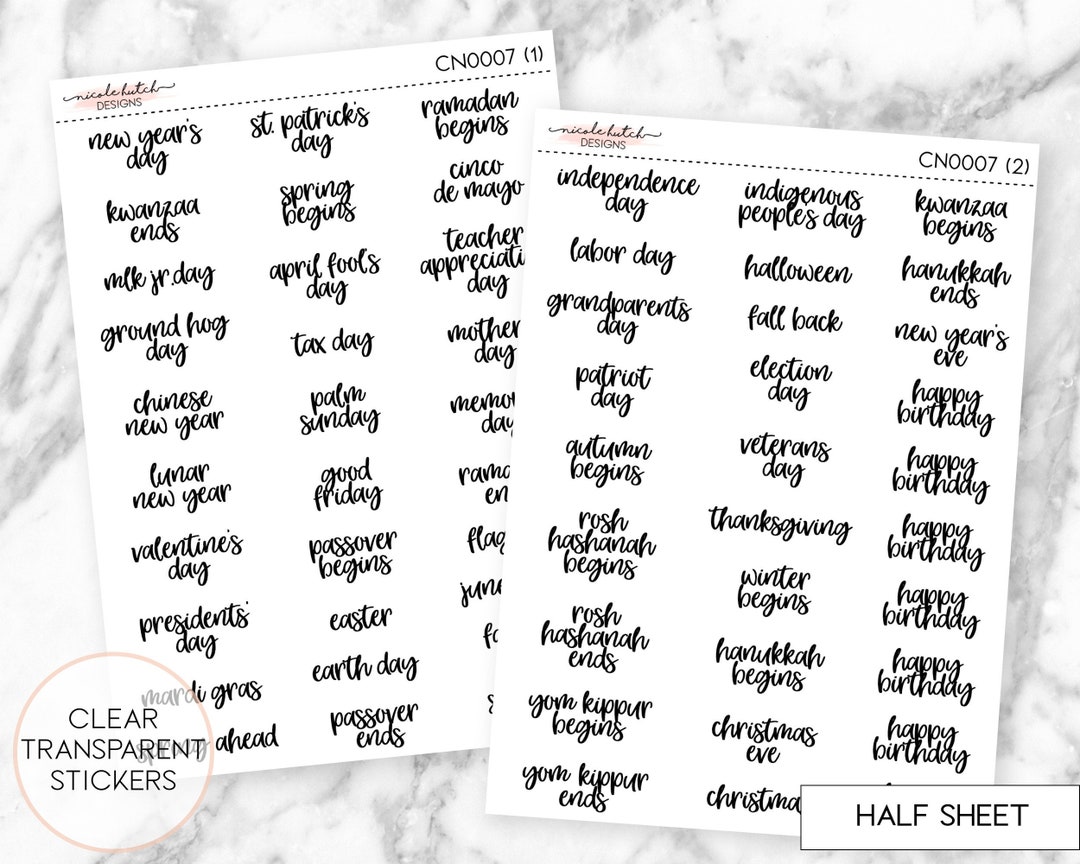 nicole hutch
DESIGNS
CN0007 (1)
new year's
day
kwanzaa
ends
mlk jr. day
ground hog
day
chinese
new year
lunar
new year
valentine's
day
presidents'
day
mardi gras
spring ahead
st. patrick's
day
spring
begins
april fool's
day
tax day
palm
sunday
good
friday
passover
begins
easter
earth day
passover
ends
ramadan
begins
cinco
de mayo
teacher
appreciati
day
mother
day
memor
day
rama
en
flag
june
nicole hutch
DESIGNS
CN0007 (2)
independence
day
labor day
grandparents
day
patriot
day
autumn
begins
rosh
hashanah
begins
rosh
hashanah
ends
yom kippur
begins
yom kippur
ends
indigenous
people's day
halloween
fall back
election
day
veterans
day
thanksgiving
winter
begins
hanukkah
begins
christmas
eve
christma
kwanzaa
begins
hanukkah
ends
new year's
eve
happy
birthday
happy
birthday
happy
birthday
happy
birthday
happy
birthday
happy
birthday
CLEAR
TRANSPARENT
STICKERS
HALF SHEET